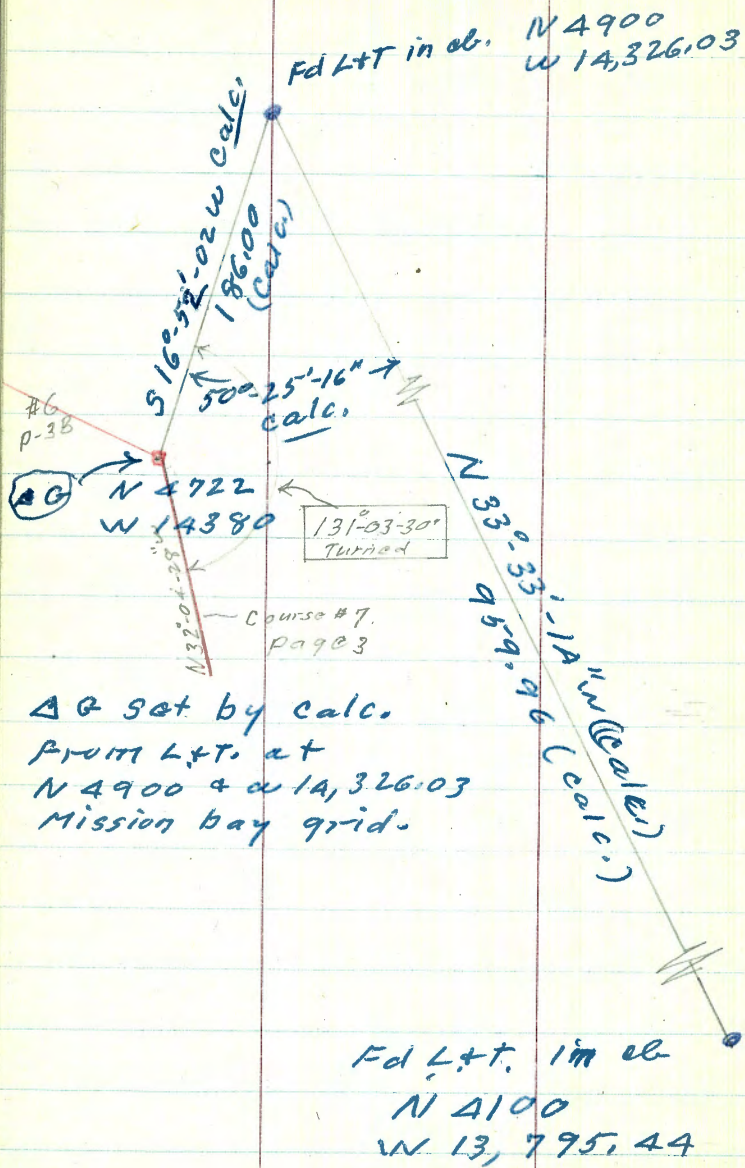 Fd L+T in cb. N 4900
W 14,326.03
S 16°-52'-02 W calc.
186.00
(calc.)
50°-25'-16"
calc.
#6
p-38
N 4722
W 14380
131°-03-30"
Turned
N 32°-04'-28" W
Course #7.
page 3
N 33°-33'-14" W (calc.)
959.96 (calc.)
Δ G set by calc.
From L+T. at
N 4900 & W 14,326.03
Mission bay grid.
Fd L+T. in cb
N 4100
W 13,795.44